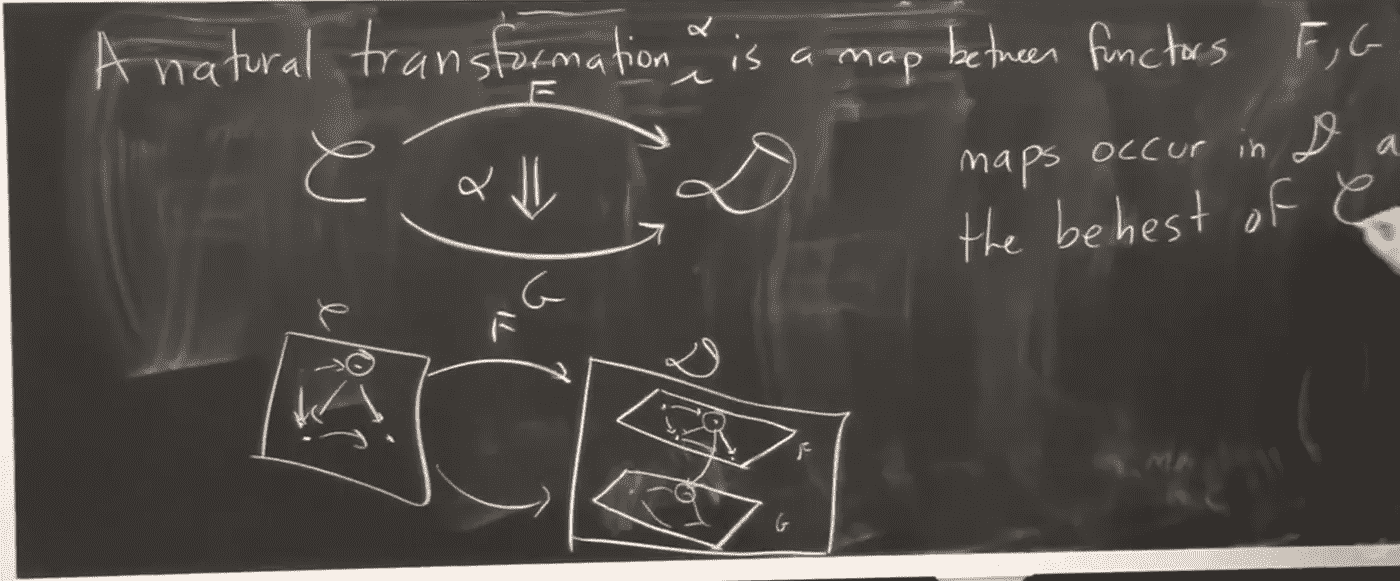 A natural transformation α is a map between functors F, G
F
C
α ⇓
D
G
maps occur in D a
the behest of C
C
F
D
F
G